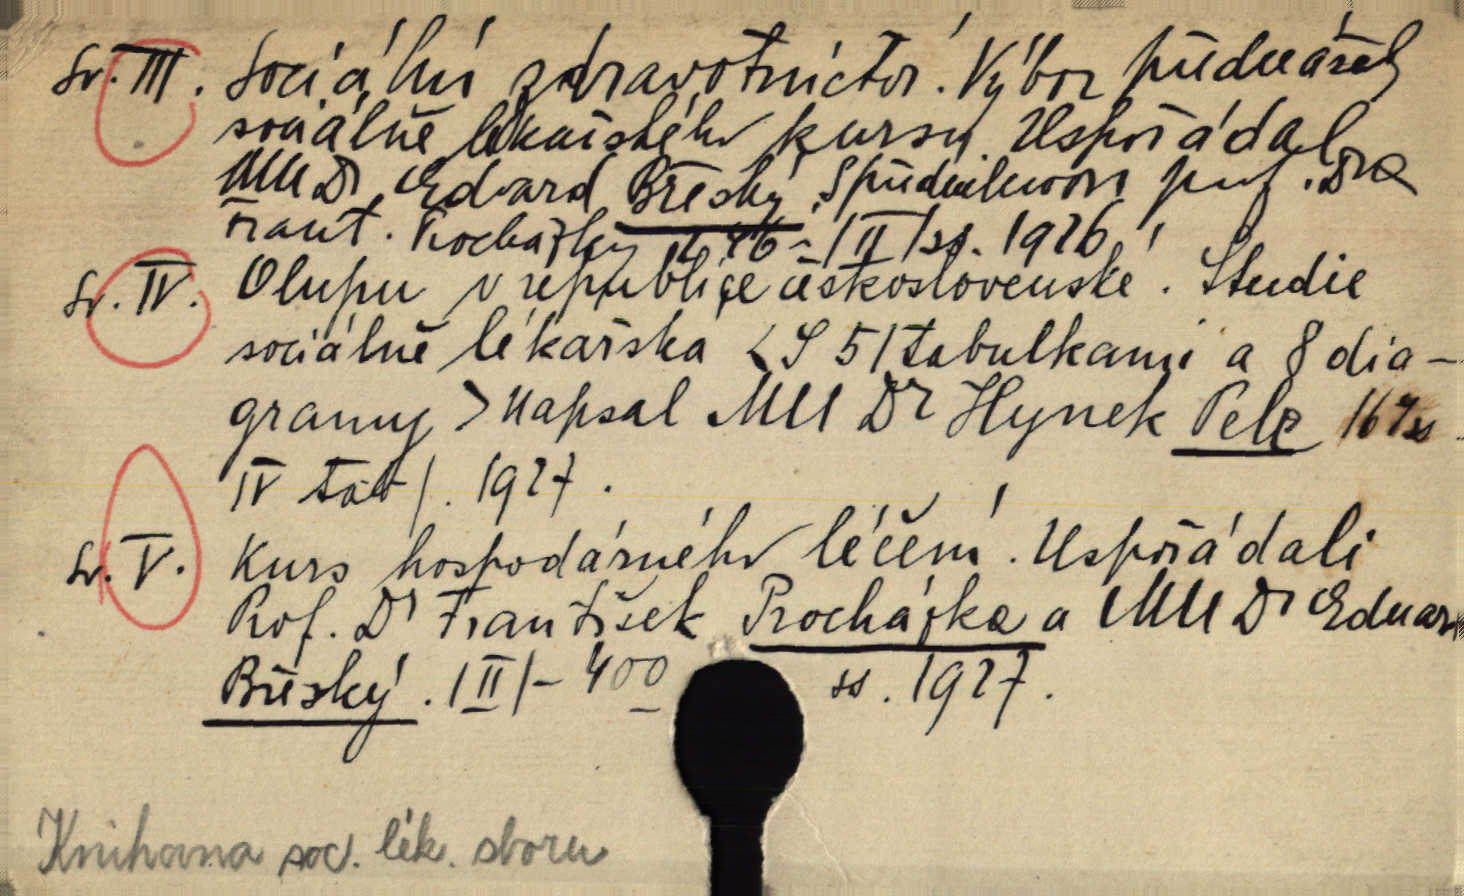 Sv. III. Sociální zdravotnictví. Výbor přednášek
sociálně lékařského kursu. Uspořádal
MUDr Edvard Břeský. S předmluvou prof. Dra
Frant. Procházky /II/ ss. 1926.
Sv. IV. O lupu v republice československé. Studie
sociálně lékařská <S 51 tabulkami a 8 dia-
gramy> Napsal MUDr Hynek Pelc 167 ss
IV tab/. 1927.
Sv. V. Kurs hospodárného léčení. Uspořádali
Prof. Dr František Procházka a MUDr Eduar
Břeský. /II/ - 400 ss. 1927.
Knihovna soc. lék. sboru